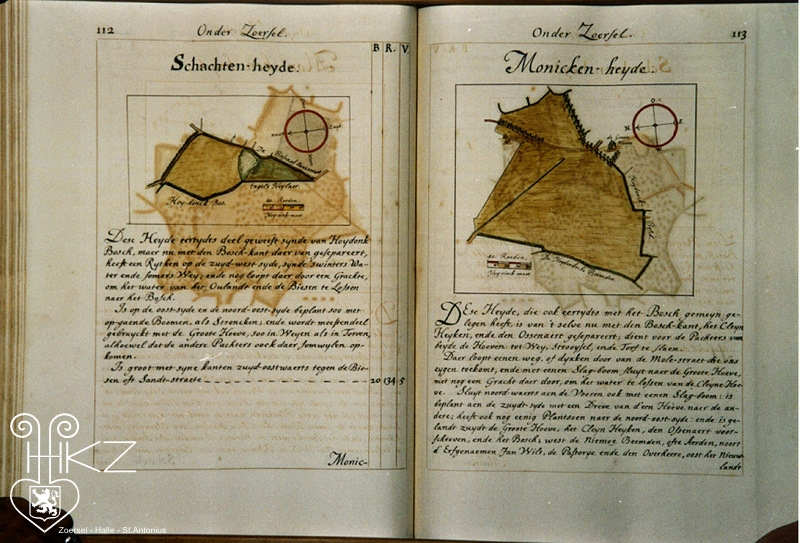 112
Onder Zoersel.
B R. V
Schachten-heyde.
Heydonck Bos.
Engels Heylaer
20. Roeden.
Dese Heyde eertydts deel geweest synde van Heydonk
Bosch, maer nu met den Bosch-kant daer van gesepareert,
heeft een Rytken op de zuyd-west-syde, synde 'swinters Wa-
ter ende somers Wey; ende nog loopt daer door een Grachte,
om het water van het Oulandt ende de Biesen te Lossen
naer het Bosch.
Is op de oost-syde en de noord-oost-syde beplant soo met
op-gaende Boomen, als Stroncken; ende wordt meestendeel
gebruyckt met de Groote Hoeve, soo in Weyen als in Torven,
alhoewel dat de andere Pachters oock daer somwylen op-
komen.
Is groot met syne kanten zuyd-oostwaerts tegen de Bie-
sen oft Sandt-straete 20 134 5
Monic-
113
Onder Zoersel.
Monicken-heyde.
20. Roeden.
De Heydonckse Beemden
DEse Heyde, die ook eertydts met het Bosch gemeyn ge-
legen heeft, is van 't selve nu met den Bosch-kant, het Cleyn
Heyken, ende den Ossenaert gesepareert; dient voor de Pachters van
beyde de Hoeven tot Wey, Strooysel, ende Torf te slaen.
Daer loopt eenen weg, of dyxken door van de Mole-straet die ons
eygen toekomt, ende met eenen Slag-boom sluyt naer de Groote Hoeve,
met nog een Gracht daer door, om het water te lossen van de Cleyne Hoe-
ve. Sluyt noord-waerts aen de Vooren ook met eenen Slag-boom: is
beplant aen de zuydt-syde met een Dreve van d'een Hoeve naer de an-
dere; heeft ook nog eenig Plantsoen naer de noord-oost-syde: ende is ge-
landt zuydt de Groote Hoeve, het Cleyn Heyken, den Ossenaert voor-
schreven, ende het Bosch; west de Niemoer Beemden, ofte Aerden, noort
d' Erfgenaemen Jan Wils, de Pastorye ende den Overheere, oost het Nieuw-
landt
HKZ
Zoersel - Halle - St.Antonius